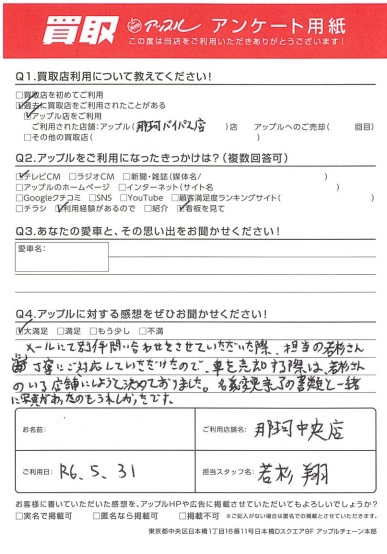 買取 アップル アンケート用紙
この度は当店をご利用いただきありがとうございます!
Q1.買取店利用について教えてください!
□買取店を初めてご利用
☑過去に買取店をご利用されたことがある
☑アップル店をご利用
ご利用された店舗：アップル( 那珂バイパス店 )店 アップルへのご売却( 回目)
□その他の買取店( )
Q2.アップルをご利用になったきっかけは?(複数回答可)
☑テレビCM □ラジオCM □新聞・雑誌(媒体名/ )
□アップルのホームページ □インターネット(サイト名 )
□Googleクチコミ □SNS □YouTube □顧客満足度ランキングサイト( )
□チラシ ☑利用経験があるので □紹介 ☑看板を見て
Q3.あなたの愛車と、その思い出をお聞かせください!
愛車名：
Q4.アップルに対する感想をぜひお聞かせください!
☑大満足 □満足 □もう少し □不満
メールにて別件問い合わせをさせていただいた際、担当の若杉さん
が丁寧にご対応していただけたので、車を売却する際は、若杉さん
のいる店舗にしようと決めておりました。名義変更完了の書類と一緒
に写真があったのもうれしかったです。
お名前： ご利用店舗名： 那珂中央店
ご利用日： R6.5.31 担当スタッフ名： 若杉 翔
お客様に書いていただいた感想を、アップルHPや広告に掲載させていただいてもよろしいでしょうか?
□実名で掲載可 □匿名なら掲載可 □掲載不可 ※ご記入がない場合は匿名での掲載とさせていただきます。
東京都中央区日本橋1丁目16番11号日本橋Dスクエア9F アップルチェーン本部